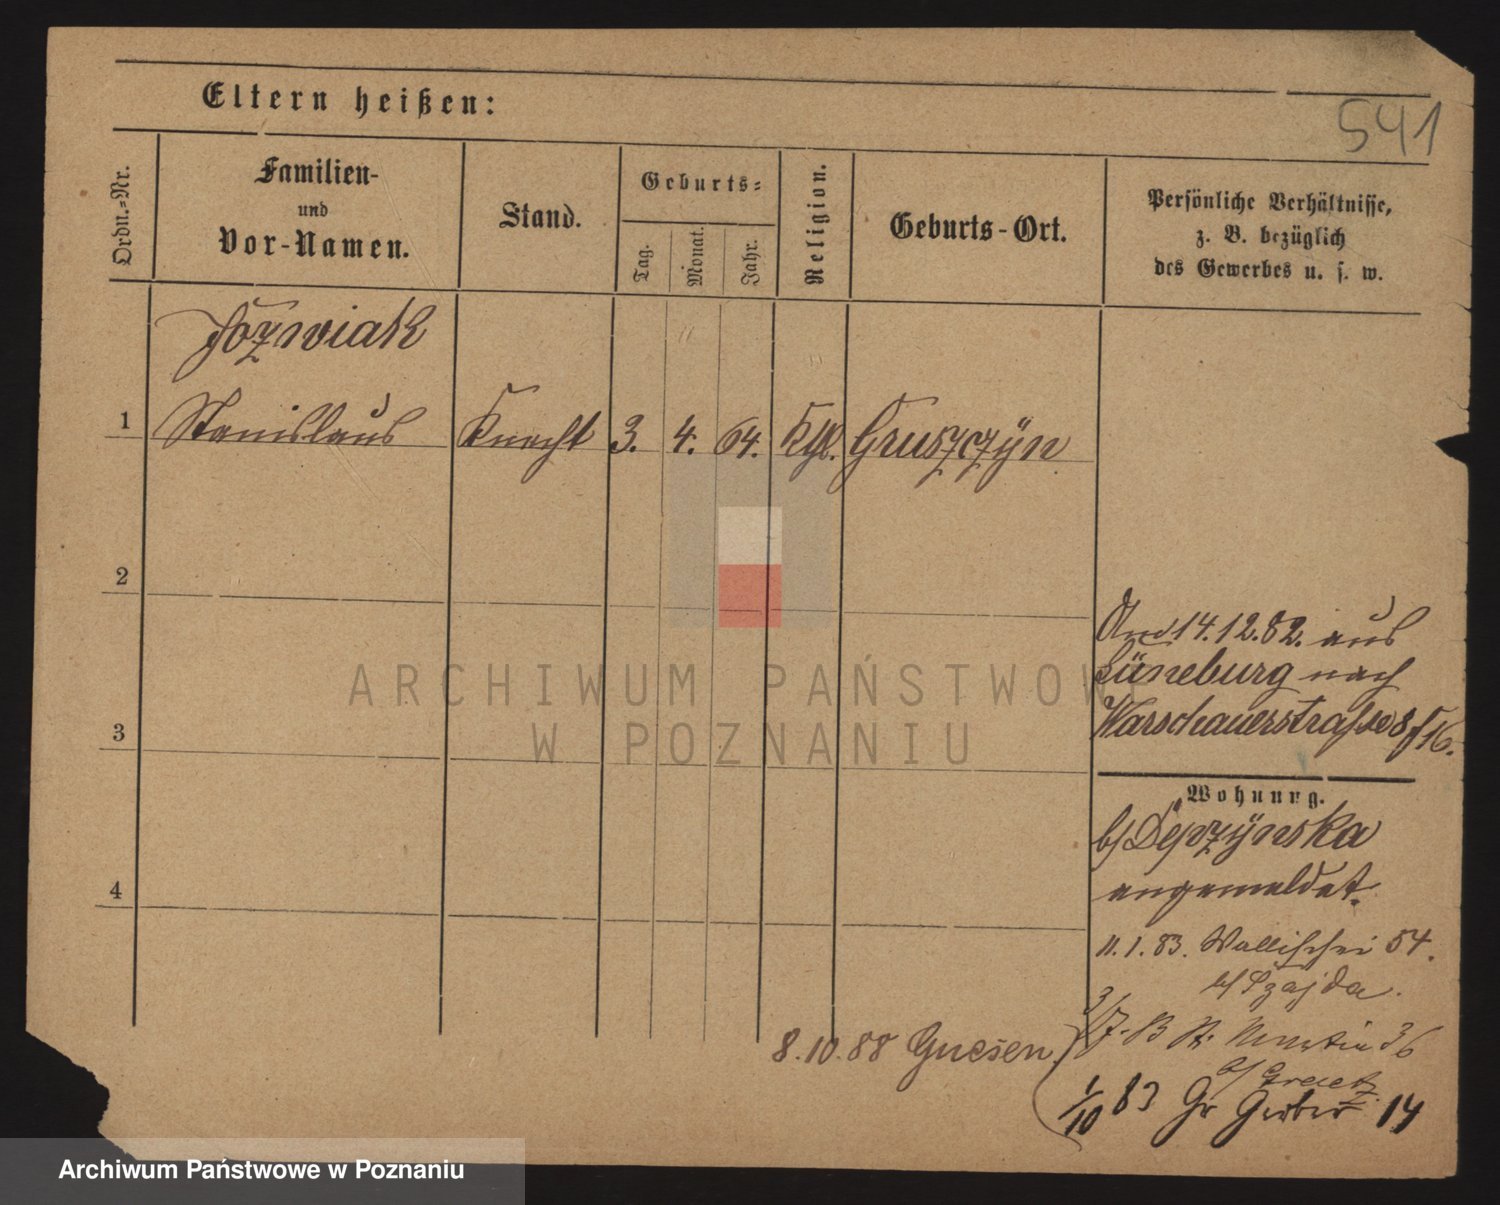 541
Eltern heißen:
Ordn.-Nr.
Familien-
und
Vor-Namen.
Stand.
Geburts-
Tag.
Monat.
Jahr.
Religion.
Geburts-Ort.
Persönliche Verhältnisse,
z. B. bezüglich
des Gewerbes u. s. w.
Jozwiak
1 Stanislaus Knecht 3. 4. 64. Kth. Gruszczÿn
2
Am 14.12.82. aus
Lüneburg nach
Warschauerstrasse 8/16.
3
Wohnung.
b/ Depczÿnska
angemeldet.
4
11.1.83. Wallischei 54.
b/ Szajda.
3/7. 83 St. Martin 36
b/ Graetz
8.10.88 Gnesen
1/10 83 Gr Gerber 14
ARCHIWUM PAŃSTWOWE
W POZNANIU
Archiwum Państwowe w Poznaniu